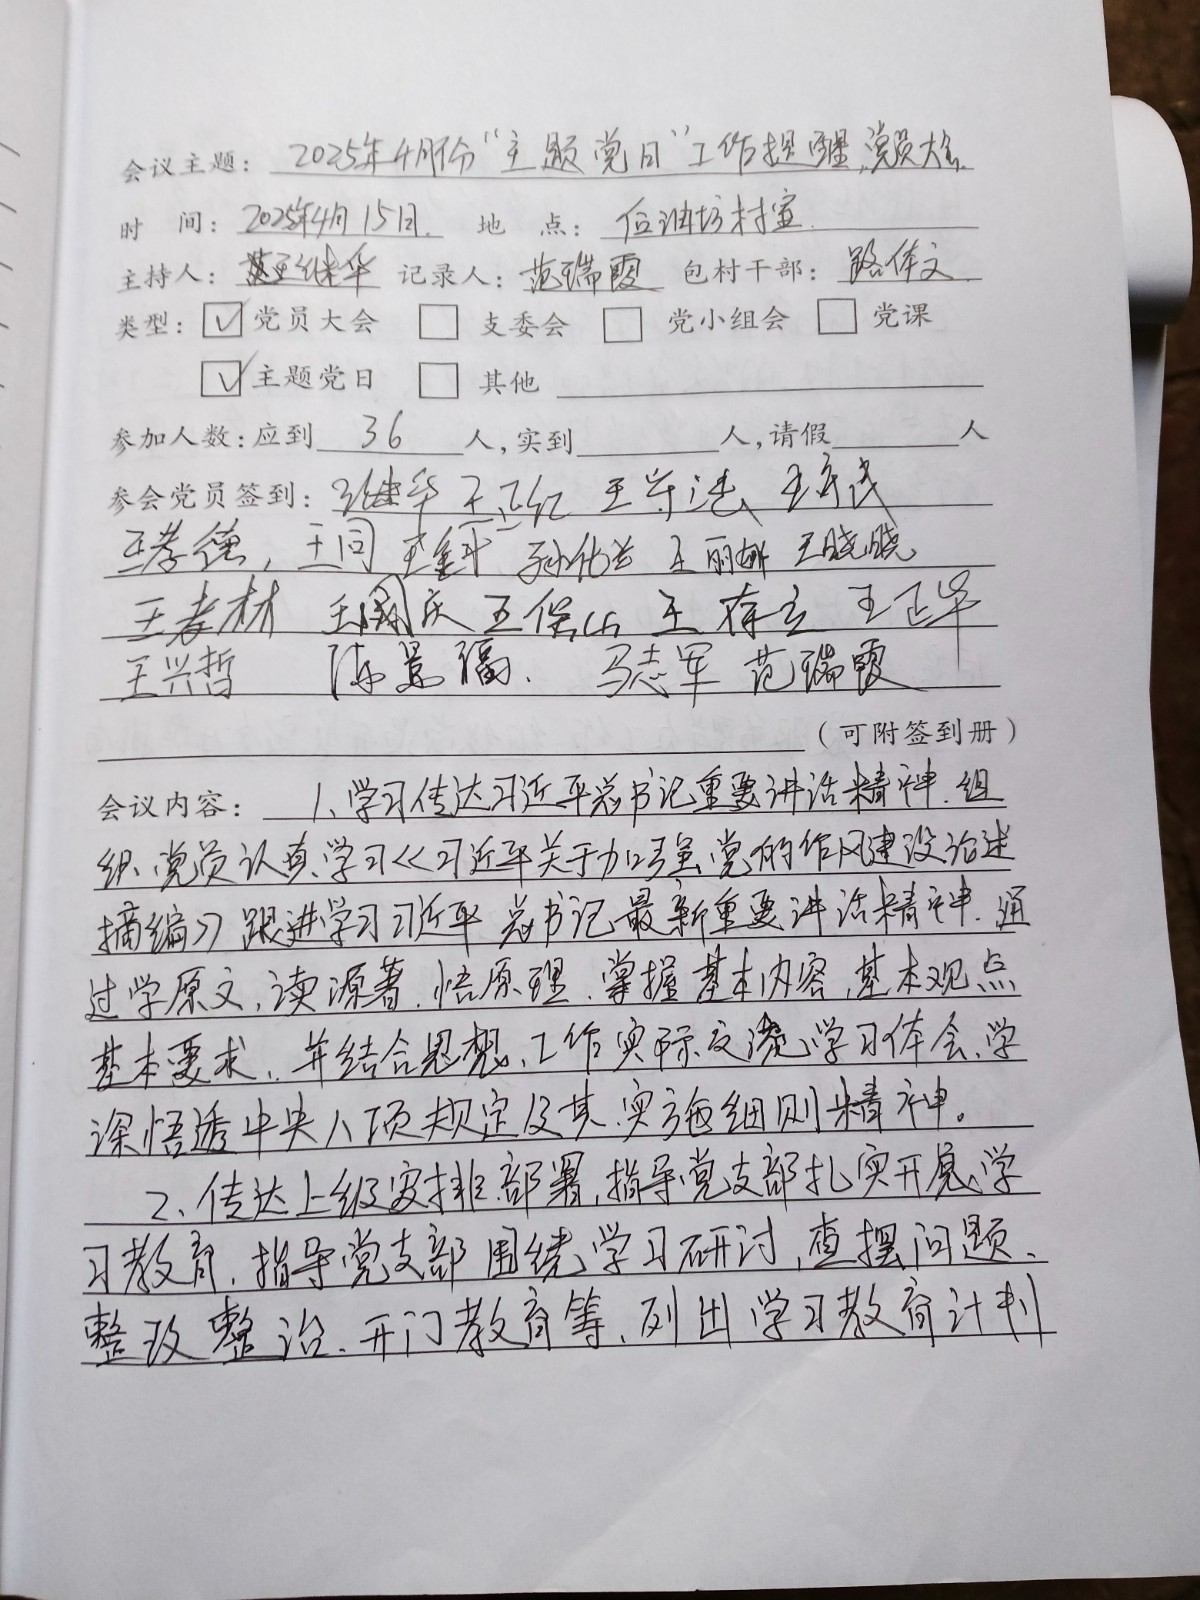 会议主题: 2025年4月份“主题党日”工作提醒、党员大会.
时 间: 2025年4月15日. 地 点: 位油坊村室.
主持人: 王继华 记录人: 范瑞霞 包村干部: 路体文
类型: ☑ 党员大会 □ 支委会 □ 党小组会 □ 党课
☑ 主题党日 □ 其他
参加人数: 应到 36 人, 实到 人, 请假 人
参会党员签到: 王继华 王正红 王守法
王孝德, 王同 孙化兰 王丽娜 王晓晓
王孝材 王国庆 王保山 王存立 王正华
王兴哲 陈景福. 马志军 范瑞霞
(可附签到册)
会议内容: 1、学习传达习近平总书记重要讲话精神. 组
织党员认真学习《习近平关于加强党的作风建设论述
摘编》跟进学习习近平总书记最新重要讲话精神. 通
过学原文、读源著、悟原理、掌握基本内容、基本观点
基本要求、并结合思想、工作实际交流学习体会、学
深悟透中央八项规定及其实施细则精神。
2、传达上级安排部署, 指导党支部扎实开展学
习教育, 指导党支部围绕学习研讨, 查摆问题、
整改整治、开门教育等, 列出学习教育计划